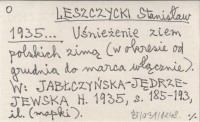 O
LESZCZYCKI Stanisław
1935... Uśnieżenie ziem
polskich zimą (w okresie od
grudnia do marca włącznie).
W: JABŁCZYŃSKA-JĘDRZE-
JEWSKA H. 1935, s. 185-193,
il. (mapki).